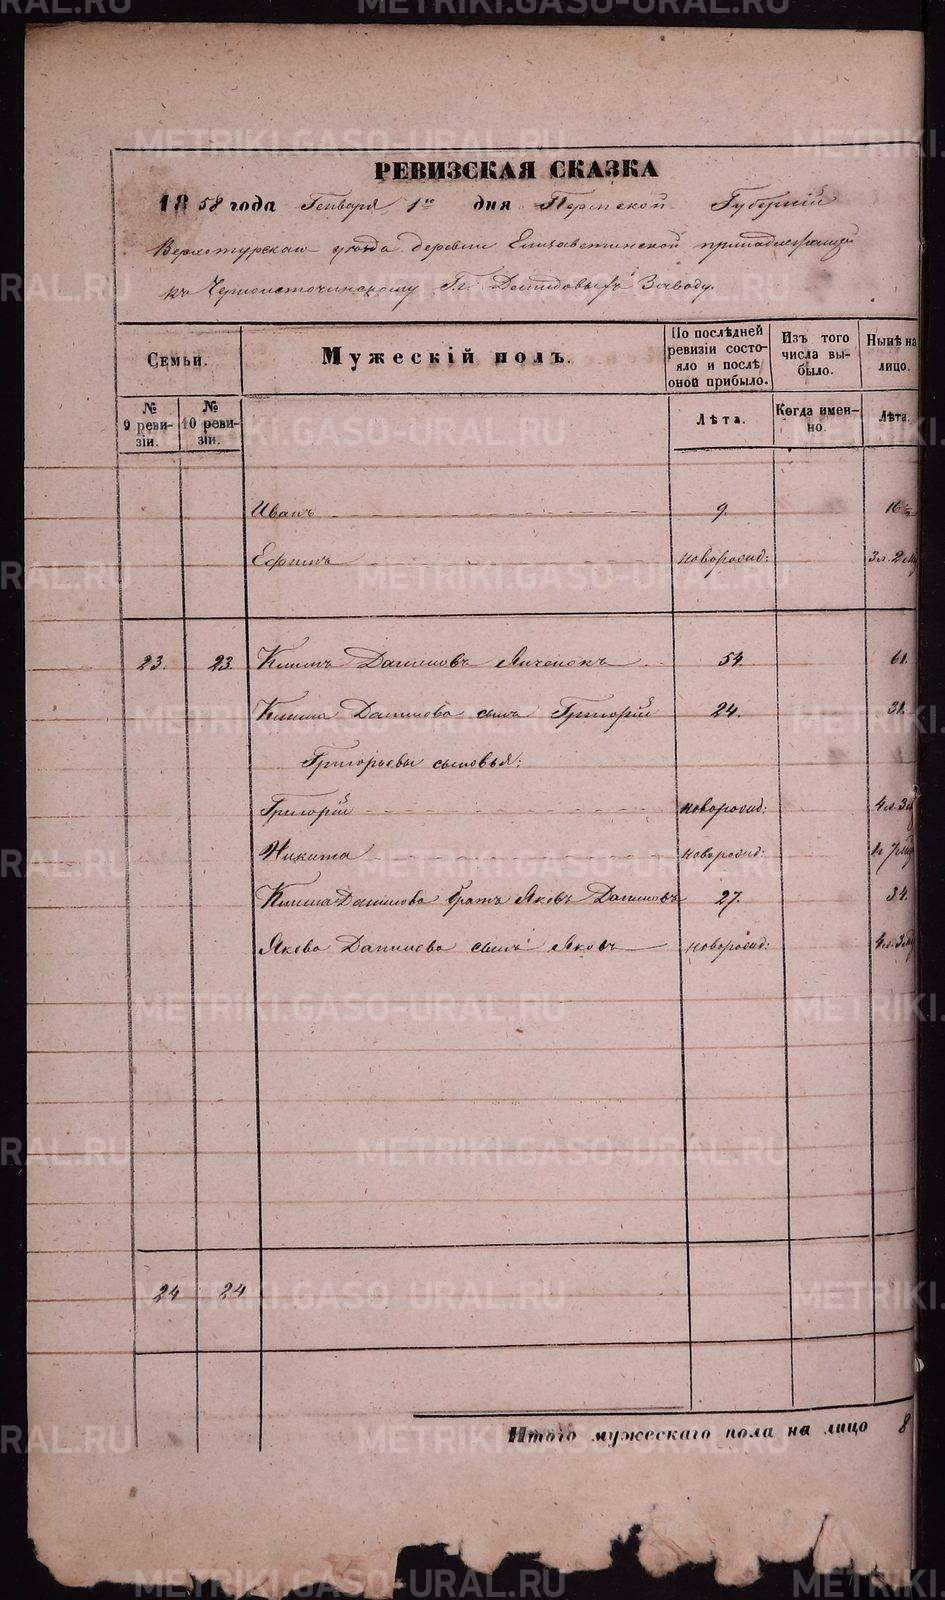 РЕВИЗСКАЯ СКАЗКА
1858 года Генваря 1го дня Пермской Губернiи
Верхотурскаго уѣзда деревни Елизаветинской принадлежащей
къ Черноисточинскому Гг. Демидовыхъ Заводу.
Семьи.
Мужескiй полъ.
По послѣдней ревизiи состояло и послѣ оной прибыло.
Изъ того числа выбыло.
Нынѣ на лицо.
№ 9 ревизiи.
№ 10 ревизiи.
Лѣта.
Когда именно.
Лѣта.
Иванъ 9. 16
Ефимъ новорожд: 3 л. 2 м
23. 23 Климъ Даниловъ 54. 61.
Клима Данилова сынъ Григорiй 24. 31.
Григорьевы сыновья:
Григорiй новорожд: 4 л. 3 м
Никита новорожд: 7 м
Клима Данилова братъ Яковъ Даниловъ 27. 34.
Якова Данилова сынъ Яковъ новорожд: 4 л. 3 м
24 24
Итого мужескаго пола на лицо 8
METRIKI.GASO-URAL.RU